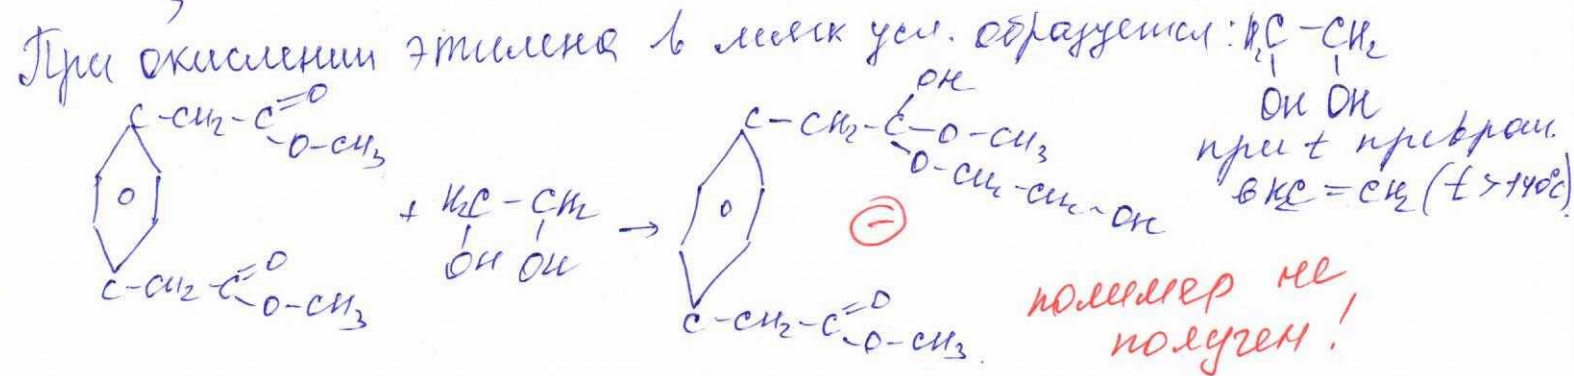 При окислении этилена в мягк усл. образуется: H₂C – CH₂
OH OH
при t превращ.
в H₂C = CH₂ (t > 140°C)
C – CH₂ – C = O
O – CH₃
C – CH₂ – C = O
O – CH₃
+ H₂C – CH₂
OH OH
→
OH
C – CH₂ – C – O – CH₃
O – CH₂ – CH₂ – OH
C – CH₂ – C = O
O – CH₃
полимер не
получен!